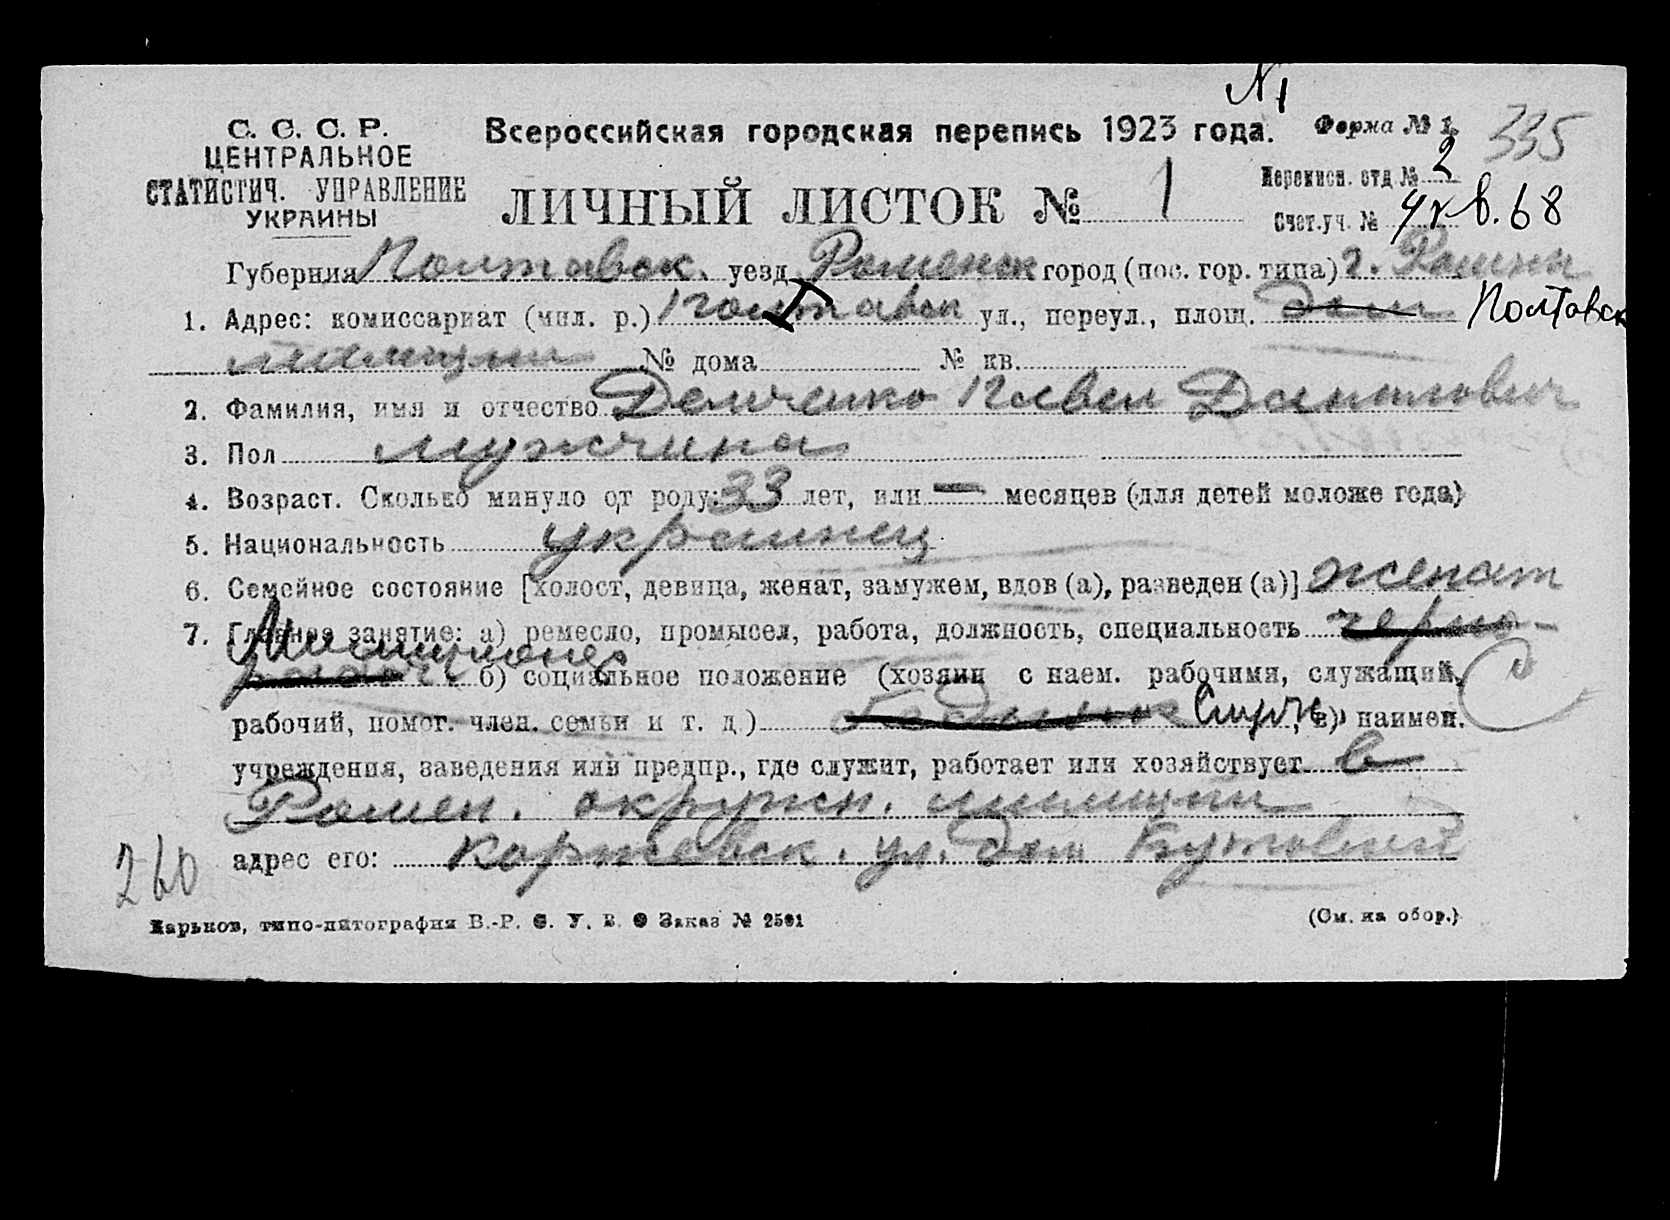 № 1
С. С. С. Р.
ЦЕНТРАЛЬНОЕ
СТАТИСТИЧ. УПРАВЛЕНИЕ
УКРАИНЫ
Всероссийская городская перепись 1923 года.
Форма № 1.
335
ЛИЧНЫЙ ЛИСТОК № 1
Переписн. отд. № 2
Счет.уч. № 68
Губерния Полтавск. уезд Роменск город (пос. гор. типа) г. Ромны
1. Адрес: комиссариат (мил. р.) I Полтавск ул., переул., площ. дом Полтавск
милиции № дома № кв.
2. Фамилия, имя и отчество Демченко Павел Данилович
3. Пол мужчина
4. Возраст. Сколько минуло от роду: 33 лет, или — месяцев (для детей моложе года)
5. Национальность украинец
6. Семейное состояние [холост, девица, женат, замужем, вдов (а), разведен (а)] женат
7. Главное занятие: а) ремесло, промысел, работа, должность, специальность черно-
Милиционер
б) социальное положение (хозяин с наем. рабочими, служащий,
рабочий, помог. член. семьи и т. д.) служ, в) наимен.
учреждения, заведения или предпр., где служит, работает или хозяйствует в
Ромен. окружн. милиции
адрес его: Коржевск. ул. дом
260
Харьков, типо-литография В.-Р. С. У. В. О Заказ № 2501
(См. на обор.)